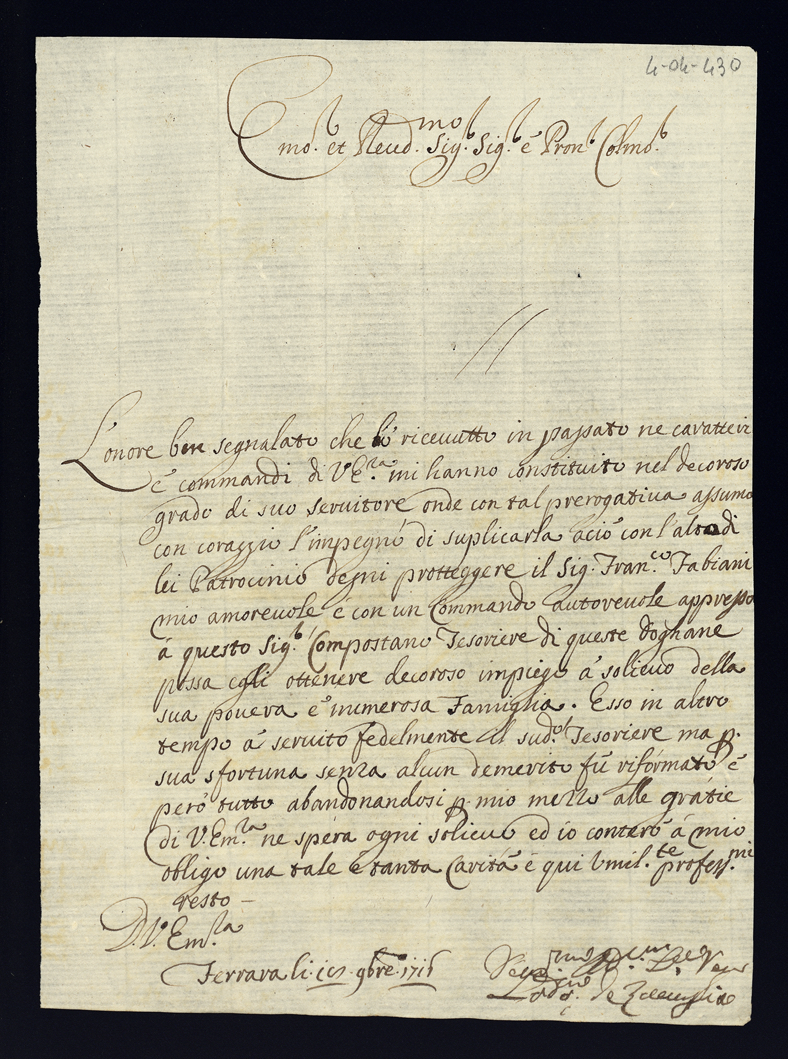 4-04-430
Emo. et Reud.mo Sig.r Sig.r e Pron. Colmo.
L'onore ben segnalato che hò riceuutto in passato ne caratteri
e commandi di V.E.za mi hanno constituito nel decoroso
grado di suo seruitore onde con tal prerogatiua assumo
con coraggio l'impegnò di suplicarla aciò con l'alto di
lei Patrocinio degni protteggere il Sig. Fran.co Fabiani
mio amoreuole e con un Commando autoreuole appresso
à questo Sig.r Compostano Tesoriere di queste doghane
possa egli ottenere decoroso impiego a solieuo della
sua pouera e numerosa Famiglia. Esso in altro
tempo à seruito fedelmente il sud.o Tesoriere ma p.
sua sfortuna senza alcun demerito fù riformato e
però tutto abandonandosi p. mio mezzo alle gratie
di V. Em.za ne spera ogni solieuo ed io contarò à mio
obligo una tale e tanta Carità e qui Vmil.te profess.mi
resto
D. V. Em.za
Ferrara li 9bre 1715